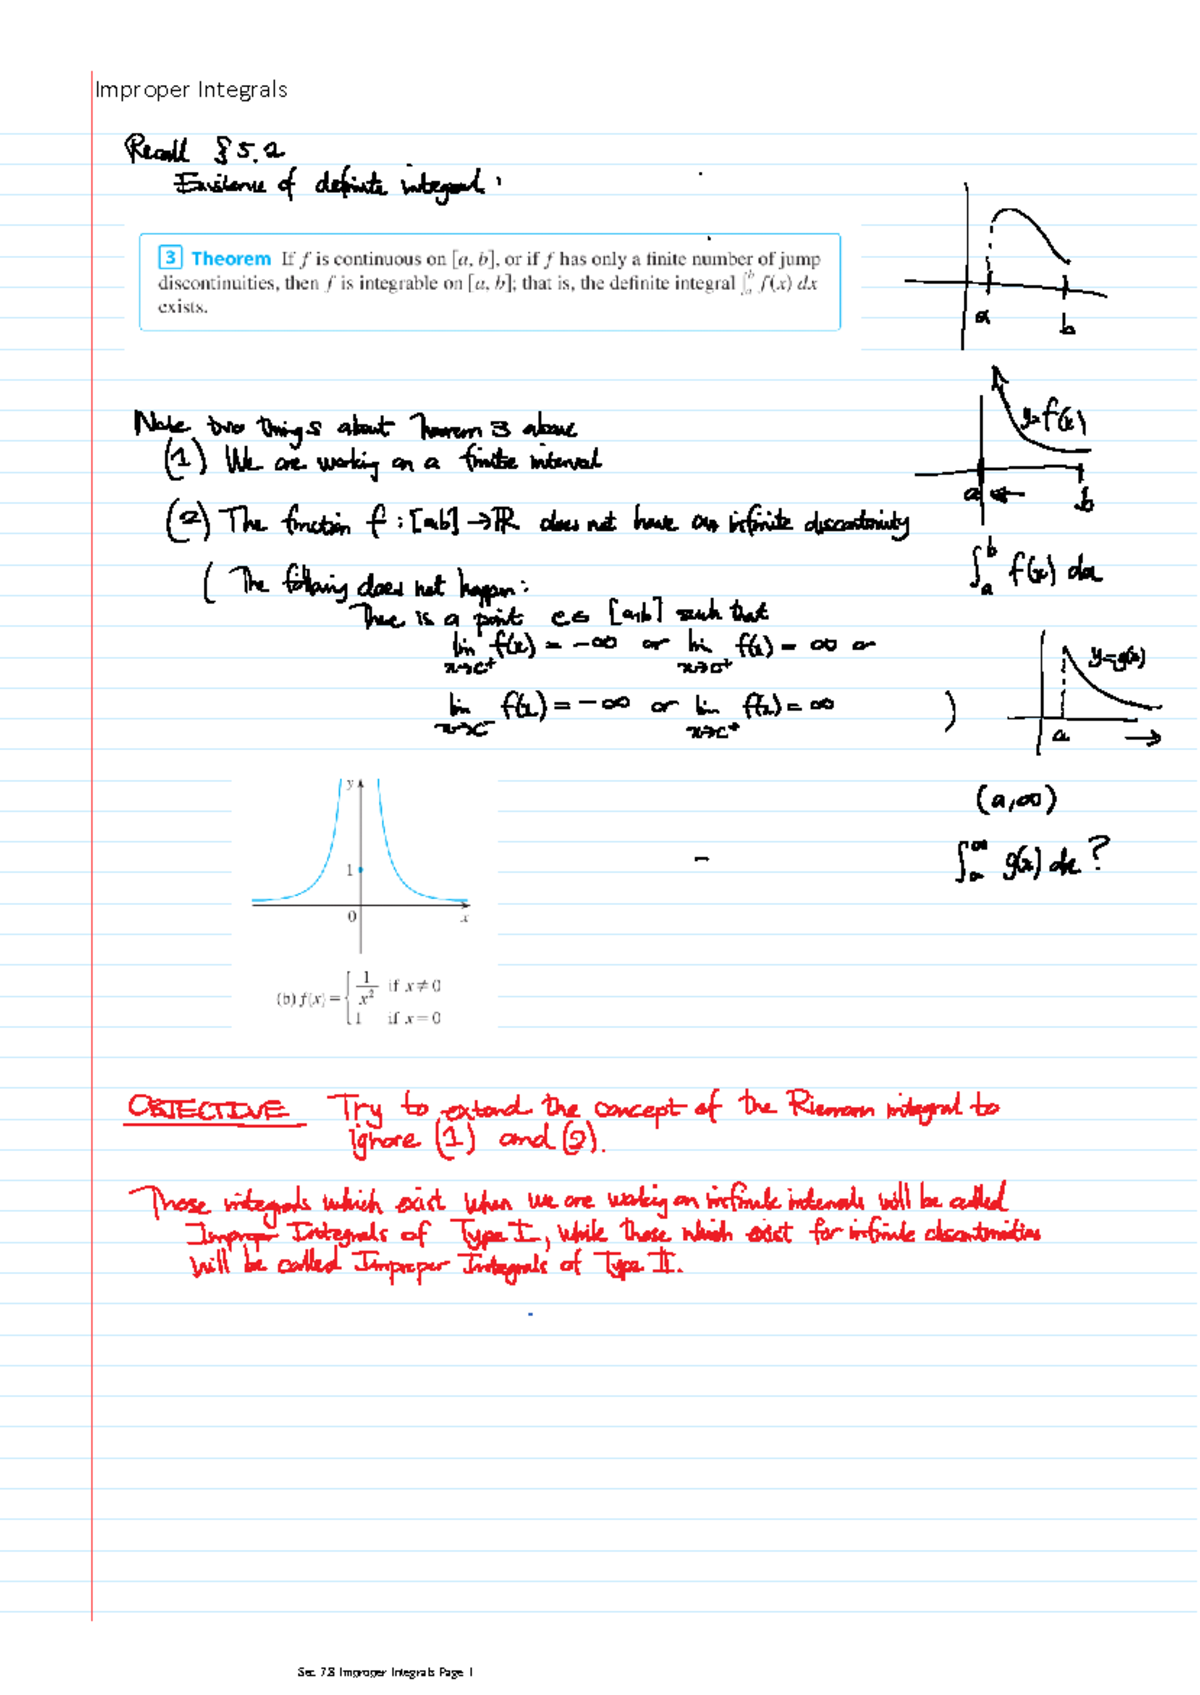 Improper Integrals
Recall § 5.2
Existence of definite integral:
3 Theorem If f is continuous on [a, b], or if f has only a finite number of jump
discontinuities, then f is integrable on [a, b]; that is, the definite integral ∫_a^b f(x) dx
exists.
a
b
Note two things about Theorem 3 above
(1) We are working on a finite interval
y=f(x)
a
b
(2) The function f : [a,b] → ℝ does not have an infinite discontinuity
∫_a^b f(x) dx
( The following does not happen:
There is a point c ∈ [a,b] such that
lim x→c⁺ f(x) = -∞ or lim x→c⁺ f(x) = ∞ or
lim x→c⁻ f(x) = -∞ or lim x→c⁺ f(x) = ∞ )
y=g(x)
a
(a,∞)
∫_a^∞ g(x) dx ?
y
1
0
x
(b) f(x) = { 1/x² if x ≠ 0
1 if x = 0
OBJECTIVE Try to extend the concept of the Riemann integral to
ignore (1) and (2).
Those integrals which exist when we are working on infinite intervals will be called
Improper Integrals of Type I, while those which exist for infinite discontinuities
will be called Improper Integrals of Type II.
Sec 7.8 Improper Integrals Page 1